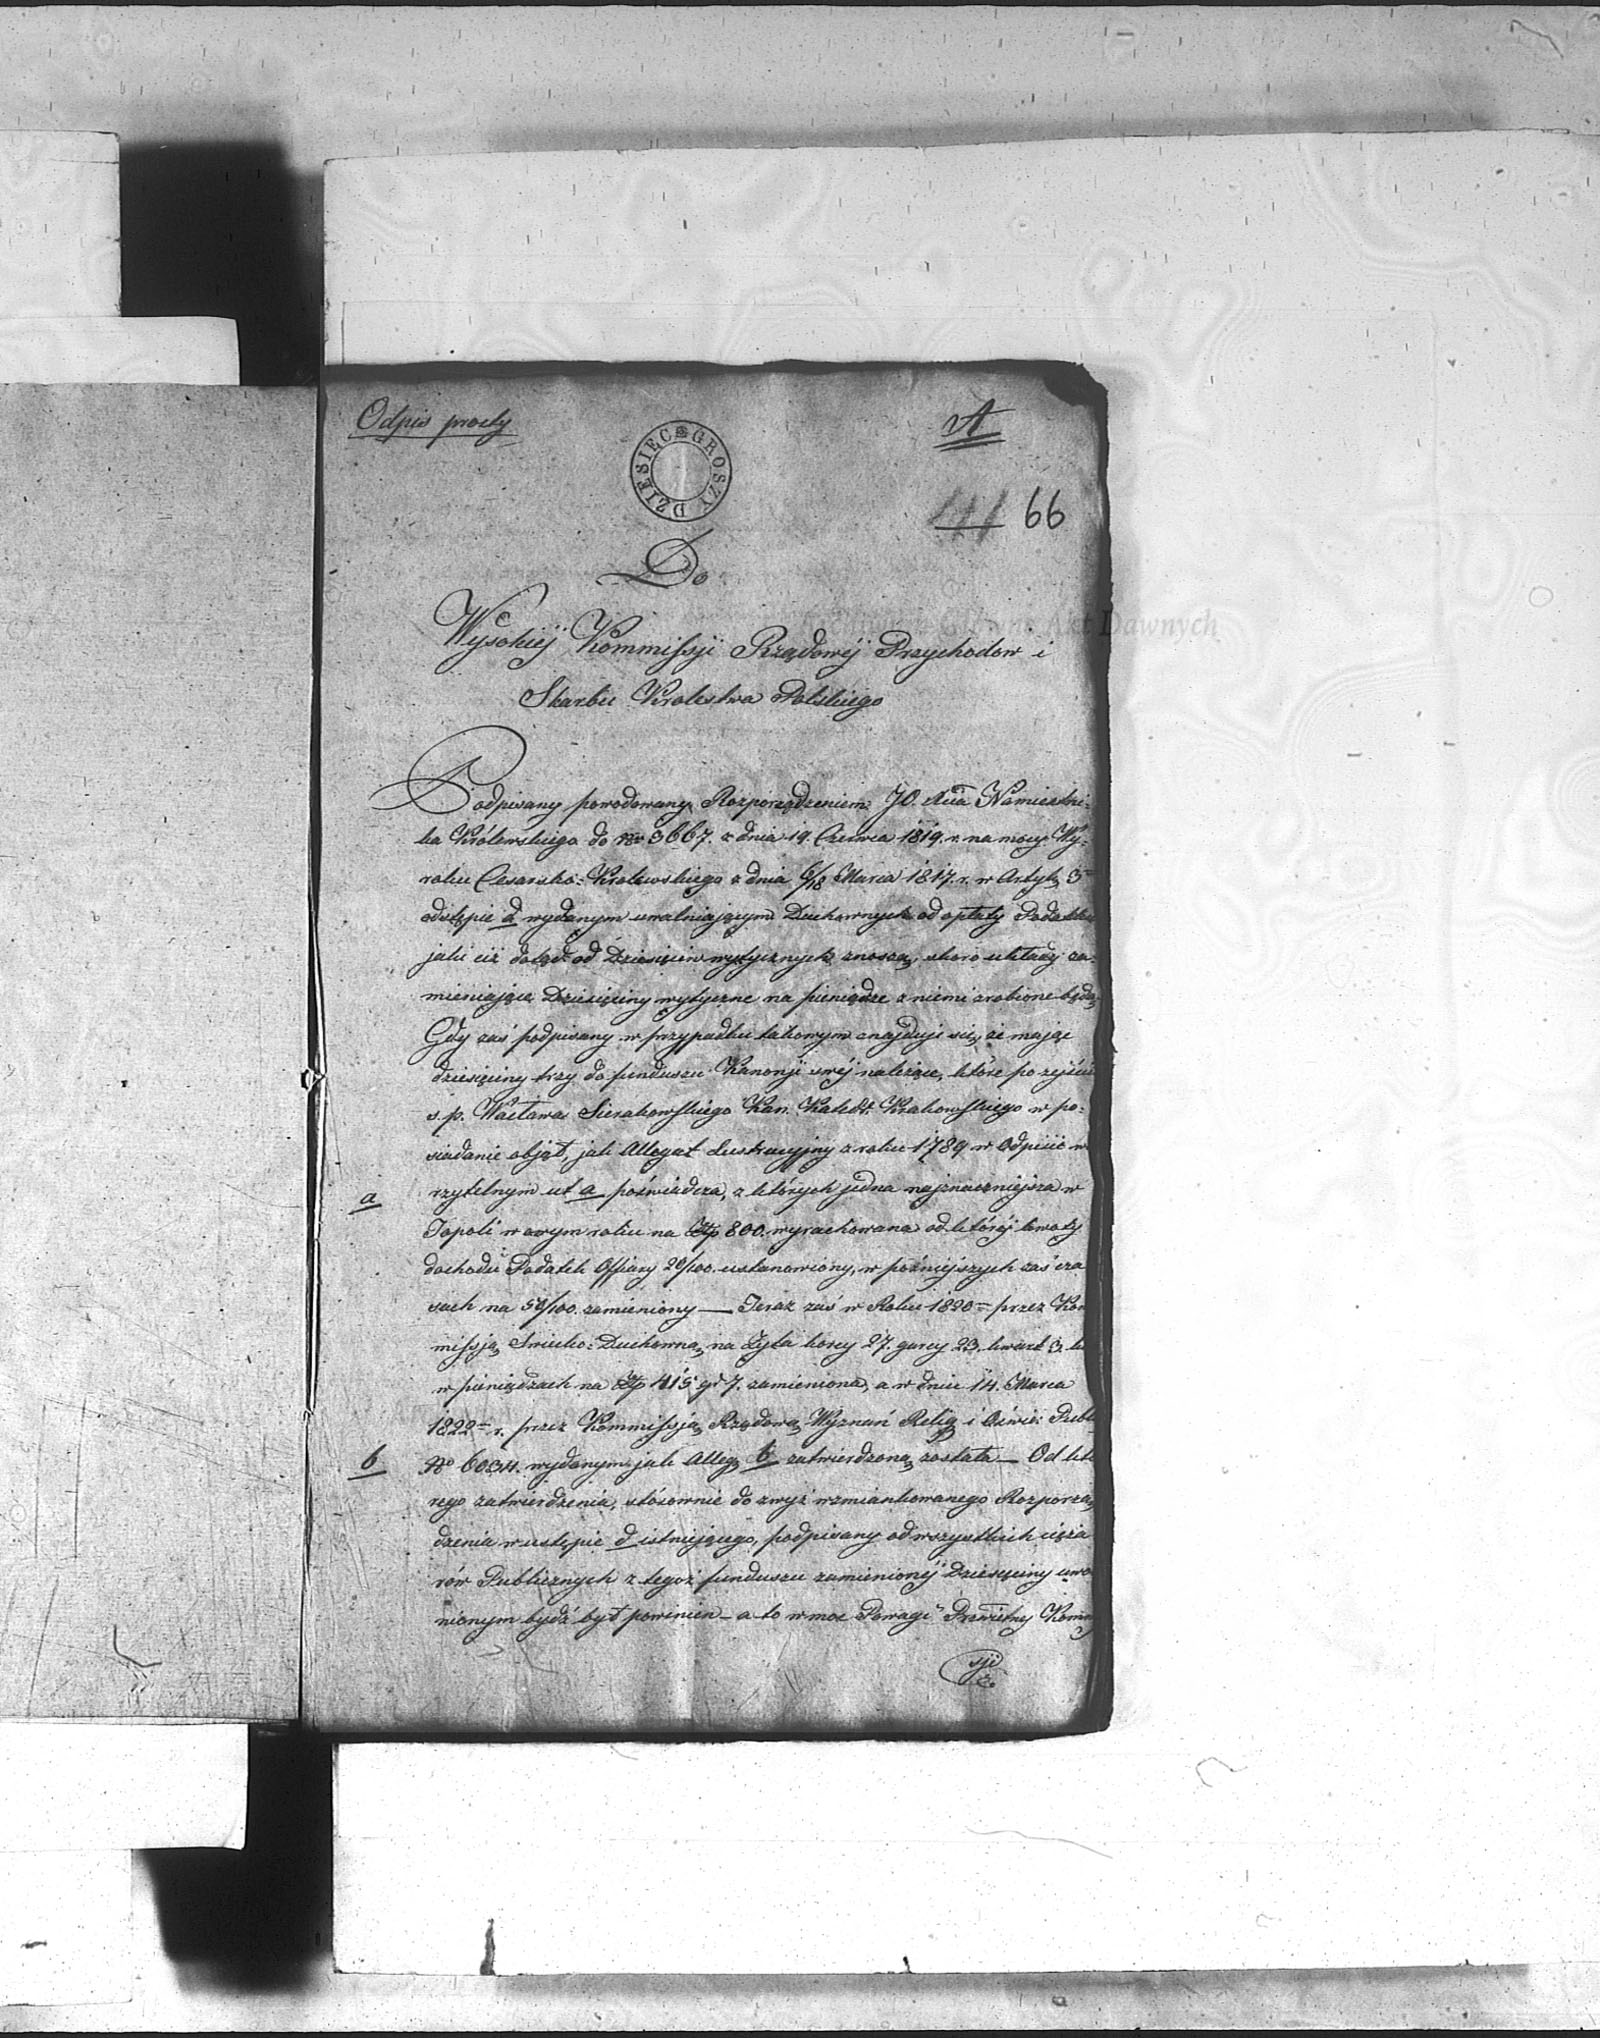 Odpis prosty
A
DZIESIĘC GROSZY
66
Do
Wysokiéj Kommissji Rządowéj Przychodow i
Skarbu Krolestwa Polskiego
Podpisany powodowany Rozporządzeniem JO. Xcia Namiestni-
ka Królewskiego do Nr 3667. z dnia 19. Czerwca 1819. r. na mocy Wy-
roku Cesarsko=Krolewskiego z dnia 6/18 Marca 1817. r. w Artyk. 3
odstępie d wydanym uwalniającym Duchownych od opłaty Podatku
jaki ciż dotąd od Dziesięcin wytycznych znoszą, skoro układy za-
mieniające Dziesięciny wytyczne na pieniądze z niemi zrobione będą,
Gdy zaś podpisany w przypadku takowym znajduje się, że mając
dziesięciny trzy do funduszu Kanonji swéj należące, które po zejściu
ś. p. Wacława Sierakowskiego Kan. Katedr. Krakowskiego w po-
siadanie objął, jak Allegat Lustracyjny z roku 1789 w Odpisie w
a
rzytelnym ut a poświadcza, z których jedna najznaczniejsza w
Topoli w owym roku na Złp 800. wyrachowana od któréj kwoty
dochodu Podatek Offiary 20/100. ustanowiony, w poźniejszych zaś cza
sach na 50/100. zamieniony — Teraz zaś w Roku 1820 przez Kom
missją Swiecko=Duchowną na Żyta korcy 27. garcy 23. kwart 3.
w pieniądzach na Złp 415 gr 7. zamieniona, a w dniu 14. Marca
1822 r. przez Kommissją Rządową Wyznań Relig. i Oświe: Publ
b
No 6034. wydanym jak Alleg. b zatwierdzoną została — Od któ
rego zatwierdzenia, stósownie do zwyż wzmiankowanego Rozporzą
dzenia w ustępie d istniejącego, podpisany od wszystkich cięża
rów Publicznych z tegoż funduszu zamienionéj Dziesięciny uwo
nionym bydź był powinien — a to w moc Powagi Prześwietny Kommi
sji